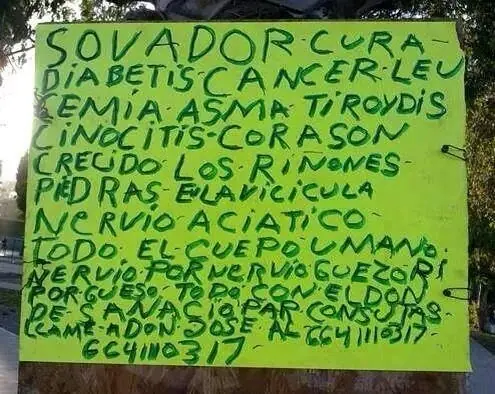 SOVADOR-CURA-
DIABETIS-CANCER-LEU
CEMIA-ASMA TIROYDIS
CINOCITIS-CORASON
CRECIDO LOS RIÑONES-
PIEDRAS ELAVICICULA
NERVIO ACIATICO-
TODO EL CUEPO UMANO.
NERVIO POR NERVIO GUEZO RI
POR GUESO-TODO CON EL DON
DE SANACIO PAR CONSUTAS-
LLAME-A DON JOSE AL 6641110317-
6641110317-